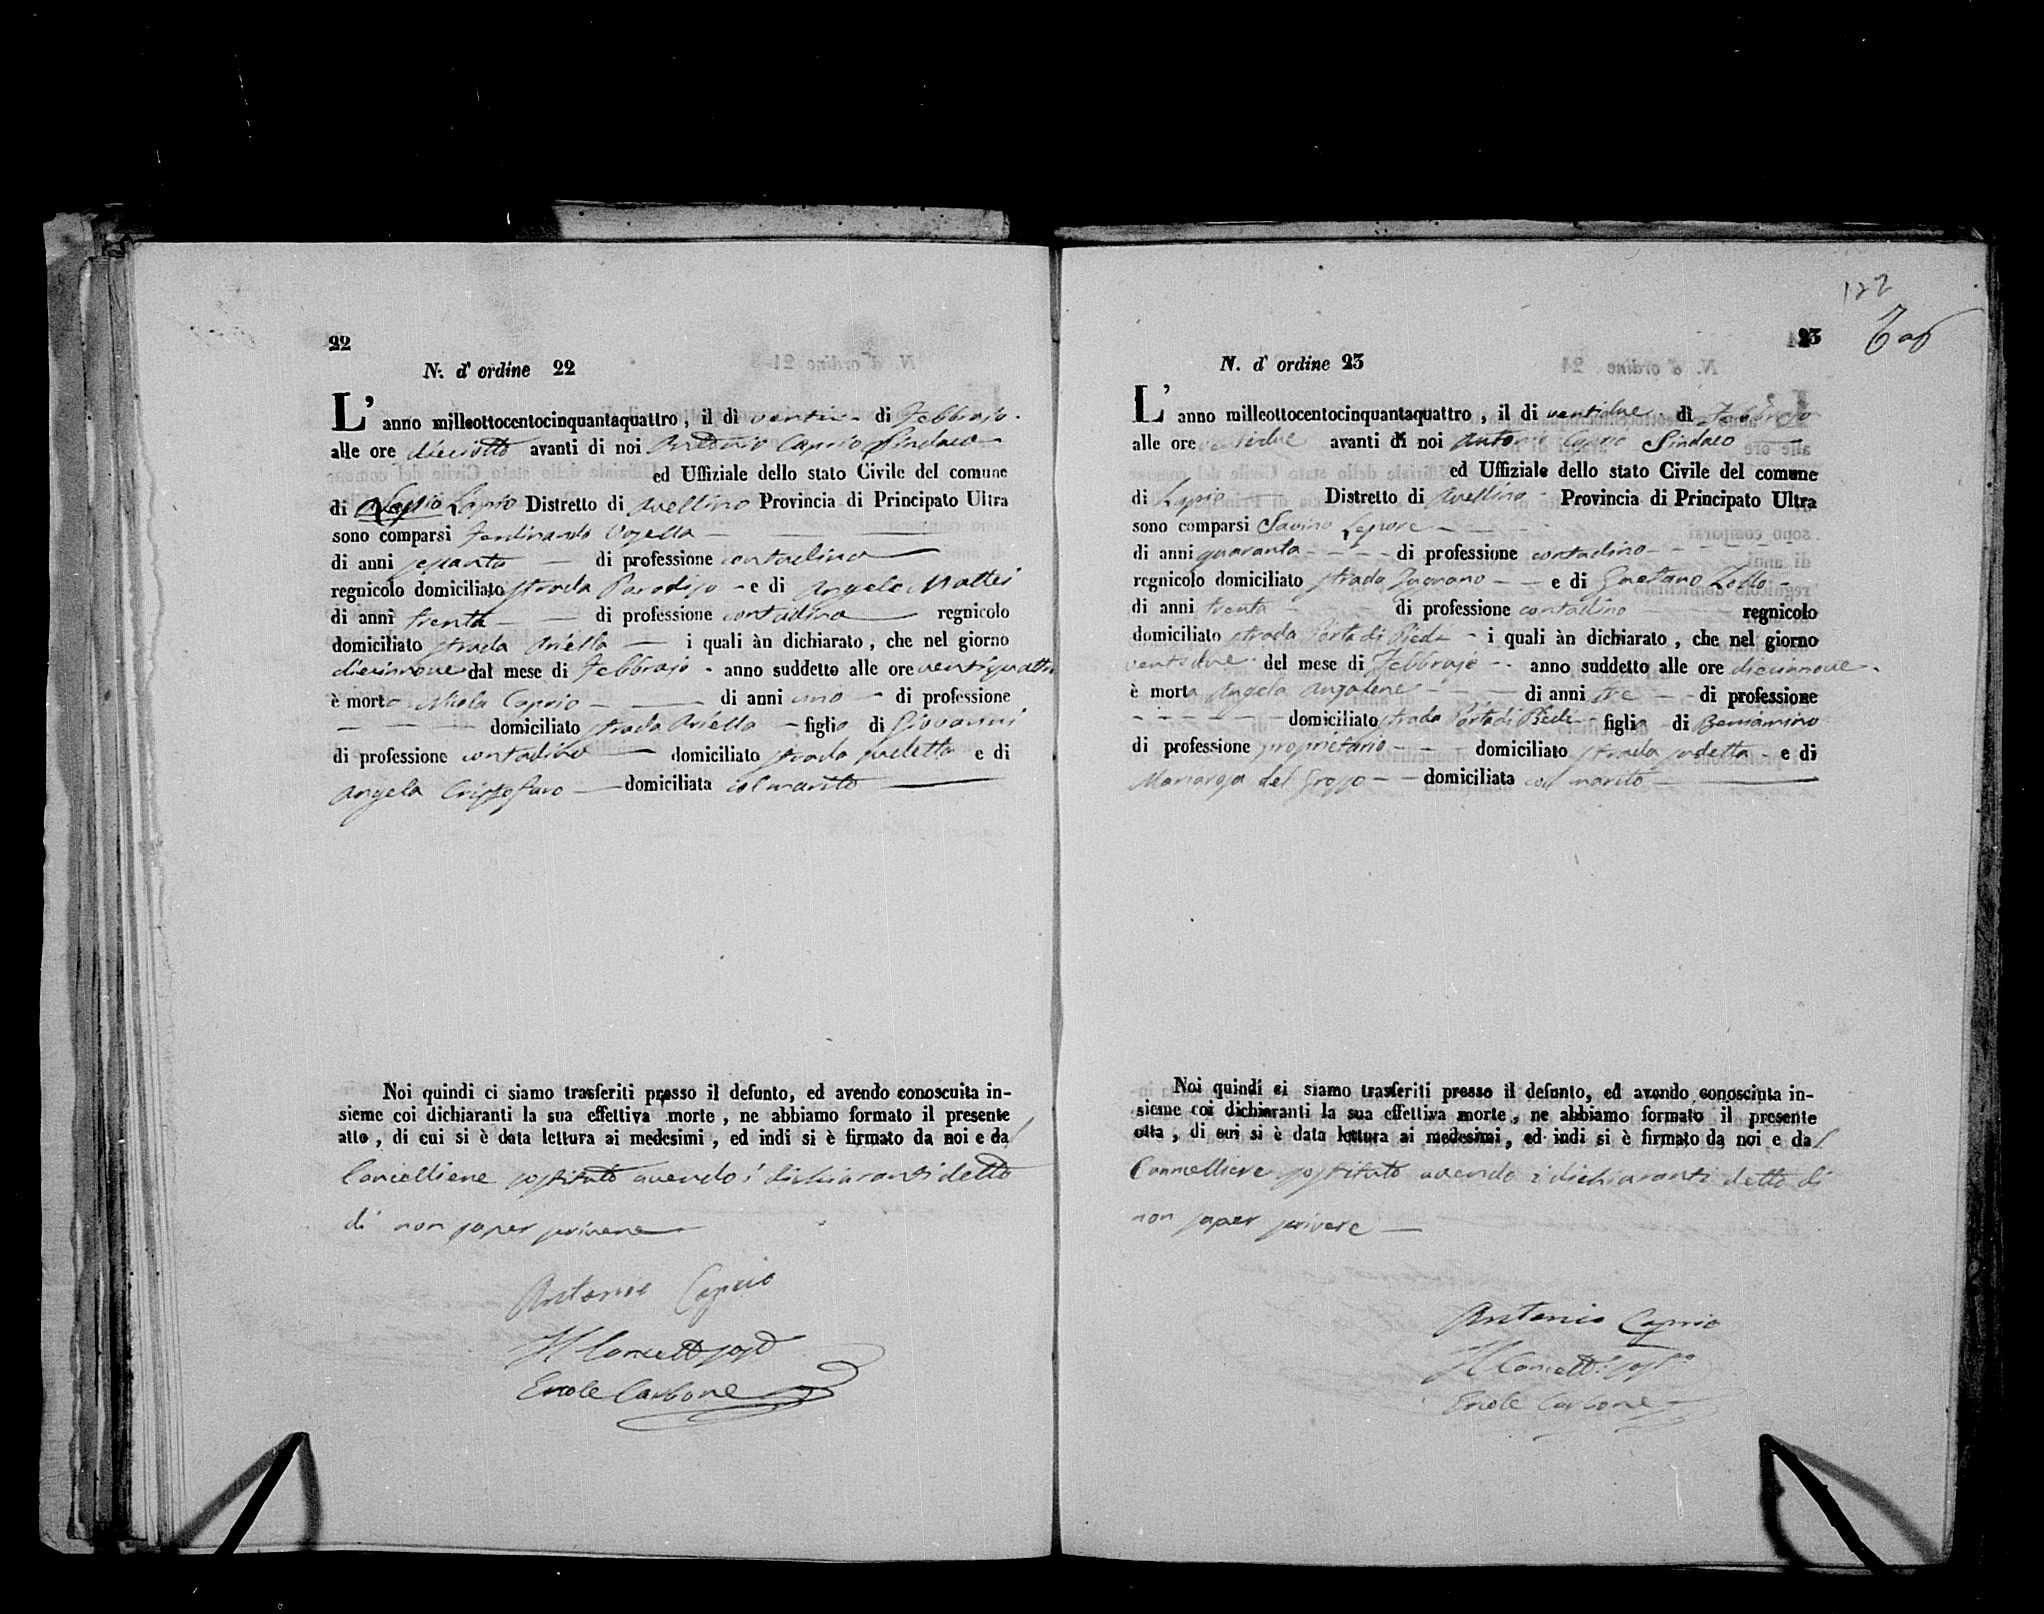 22
N. d' ordine 22
L' anno milleottocentocinquantaquattro, il dì di Febbrajo
alle ore dieciotto avanti di noi Antonio Caprio Sindaco
ed Uffiziale dello stato Civile del comune
di Lapio Distretto di Avellino Provincia di Principato Ultra
sono comparsi Ferdinando
di anni di professione contadino
regnicolo domiciliato strada Paradiso e di Angelo Mattei
di anni trenta di professione contadino regnicolo
domiciliato strada Ariella i quali àn dichiarato, che nel giorno
diecinnove dal mese di Febbrajo anno suddetto alle ore ventiquattro
è morto Caprio di anni uno di professione
domiciliato strada Ariella figlio di Giovanni
di professione contadino domiciliato strada sudetta e di
Angela Cristofaro domiciliata col marito
Noi quindi ci siamo trasferiti presso il defunto, ed avendo conoscuita in-
sieme coi dichiaranti la sua effettiva morte, ne abbiamo formato il presente
atto, di cui si è data lettura ai medesimi, ed indi si è firmato da noi e dal
Cancelliere sostituto avendo i dichiaranti detto
di non saper scrivere
Antonio Caprio
Il Cancell. sost.
Ercole Carbone
122
23
N. d' ordine 23
L' anno milleottocentocinquantaquattro, il di ventidue di Febbrajo
alle ore ventidue avanti di noi Antonio Caprio Sindaco
ed Uffiziale dello stato Civile del comune
di Lapio Distretto di Avellino Provincia di Principato Ultra
sono comparsi Savino Lepore
di anni quaranta di professione contadino
regnicolo domiciliato strada e di Gaetano Zollo
di anni trenta di professione contadino regnicolo
domiciliato strada Porta di Piedi i quali àn dichiarato, che nel giorno
ventidue del mese di Febbrajo anno suddetto alle ore diecinnove
è morta Angela di anni tre di professione
domiciliato strada Porta di Piedi figlia di Beniamino
di professione proprietario domiciliato strada sudetta e di
Mariarosa del Grosso domiciliata col marito
Noi quindi ci siamo trasferiti presso il defunto, ed avendo conosciuta in-
sieme coi dichiaranti la sua effettiva morte, ne abbiamo formato il presente
atta, di cui si è data lettura ai medesimi, ed indi si è firmato da noi e dal
Cancelliere sostituto avendo i dichiaranti detto di
non saper scrivere
Antonio Caprio
Il Cancell. sost.
Ercole Carbone